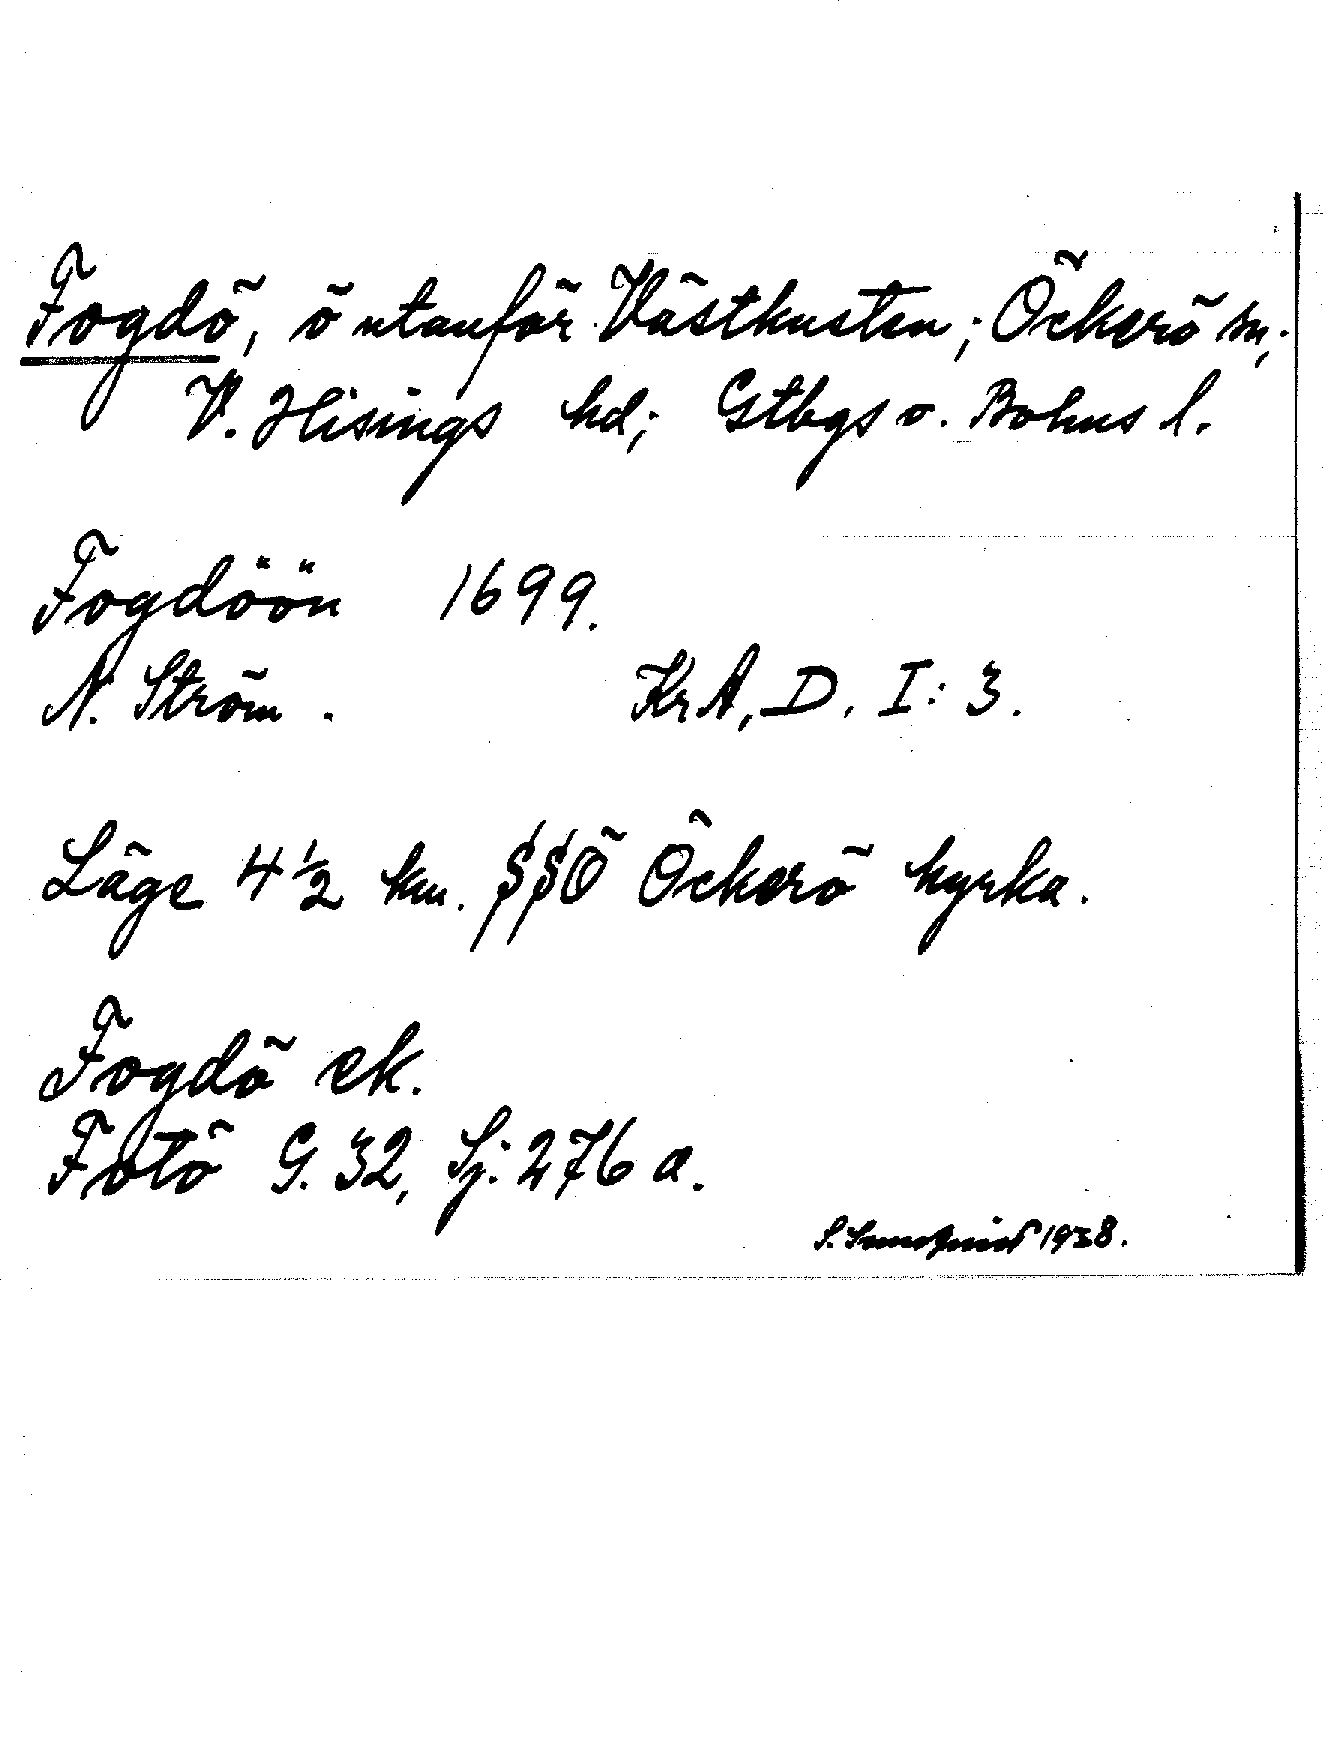 Fogdö, ö utanför Västkusten; Öckerö sn,
V. Hisings hd; Gtbgs o. Bohus l.
Fogdöön 1699.
N. Ström. KrA, D. I: 3.
Läge 4 ½ km. SSÖ Öckerö kyrka.
Fogdö ek.
Fotö G. 32, Sj: 276 a.
S. Sundquist 1938.